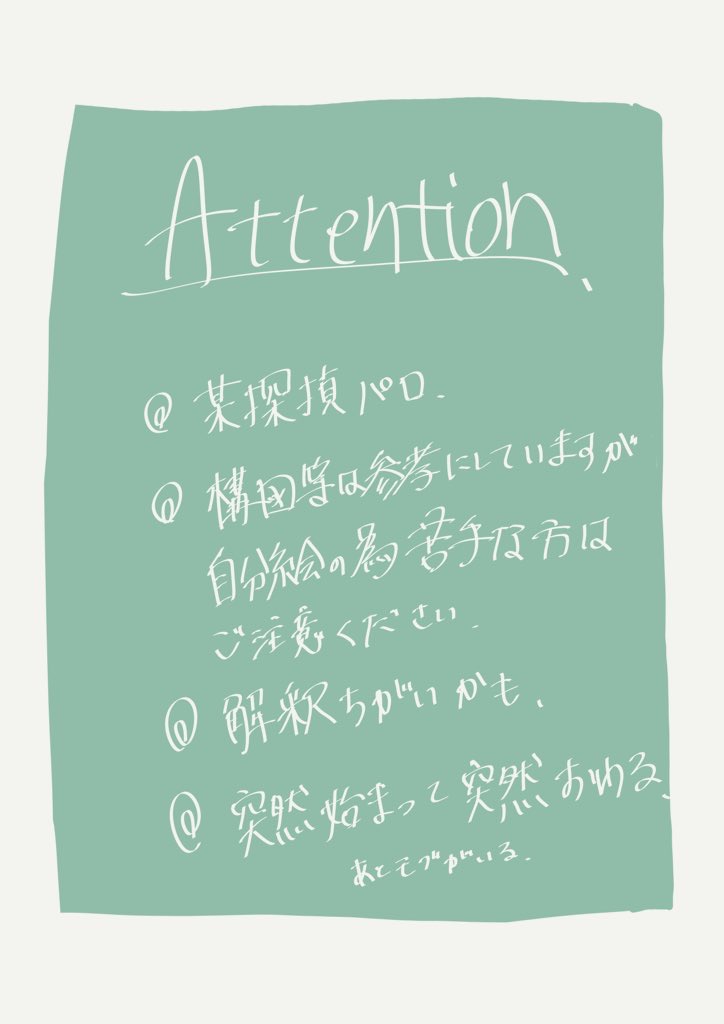 Attention
@ 某探偵パロ.
@ 構図等は参考にしていますが
自分絵の為苦手な方は
ご注意ください.
@ 解釈ちがいかも、
@ 突然始まって突然おわる、
あとモブがいる.